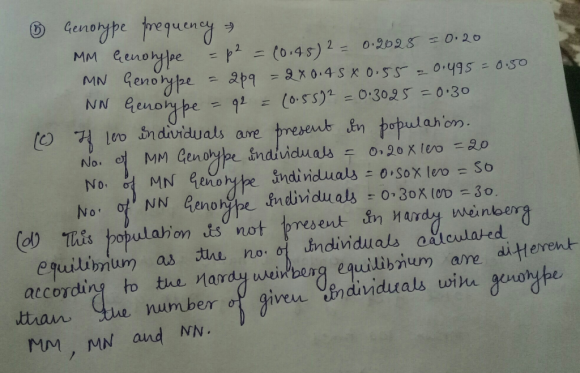 (b) Genotype frequency ⇒
MM Genotype = p² = (0.45)² = 0.2025 = 0.20
MN Genotype = 2pq = 2×0.45×0.55 = 0.495 = 0.50
NN Genotype = q² = (0.55)² = 0.3025 = 0.30
(c) If 100 individuals are present in population.
No. of MM Genotype individuals = 0.20×100 = 20
No. of MN Genotype individuals = 0.50×100 = 50
No. of NN Genotype individuals = 0.30×100 = 30.
(d) This population is not present in Hardy Weinberg
equilibrium as the no. of individuals calculated
according to the Hardy weinberg equilibrium are different
than the number of given individuals with genotype
MM, MN and NN.